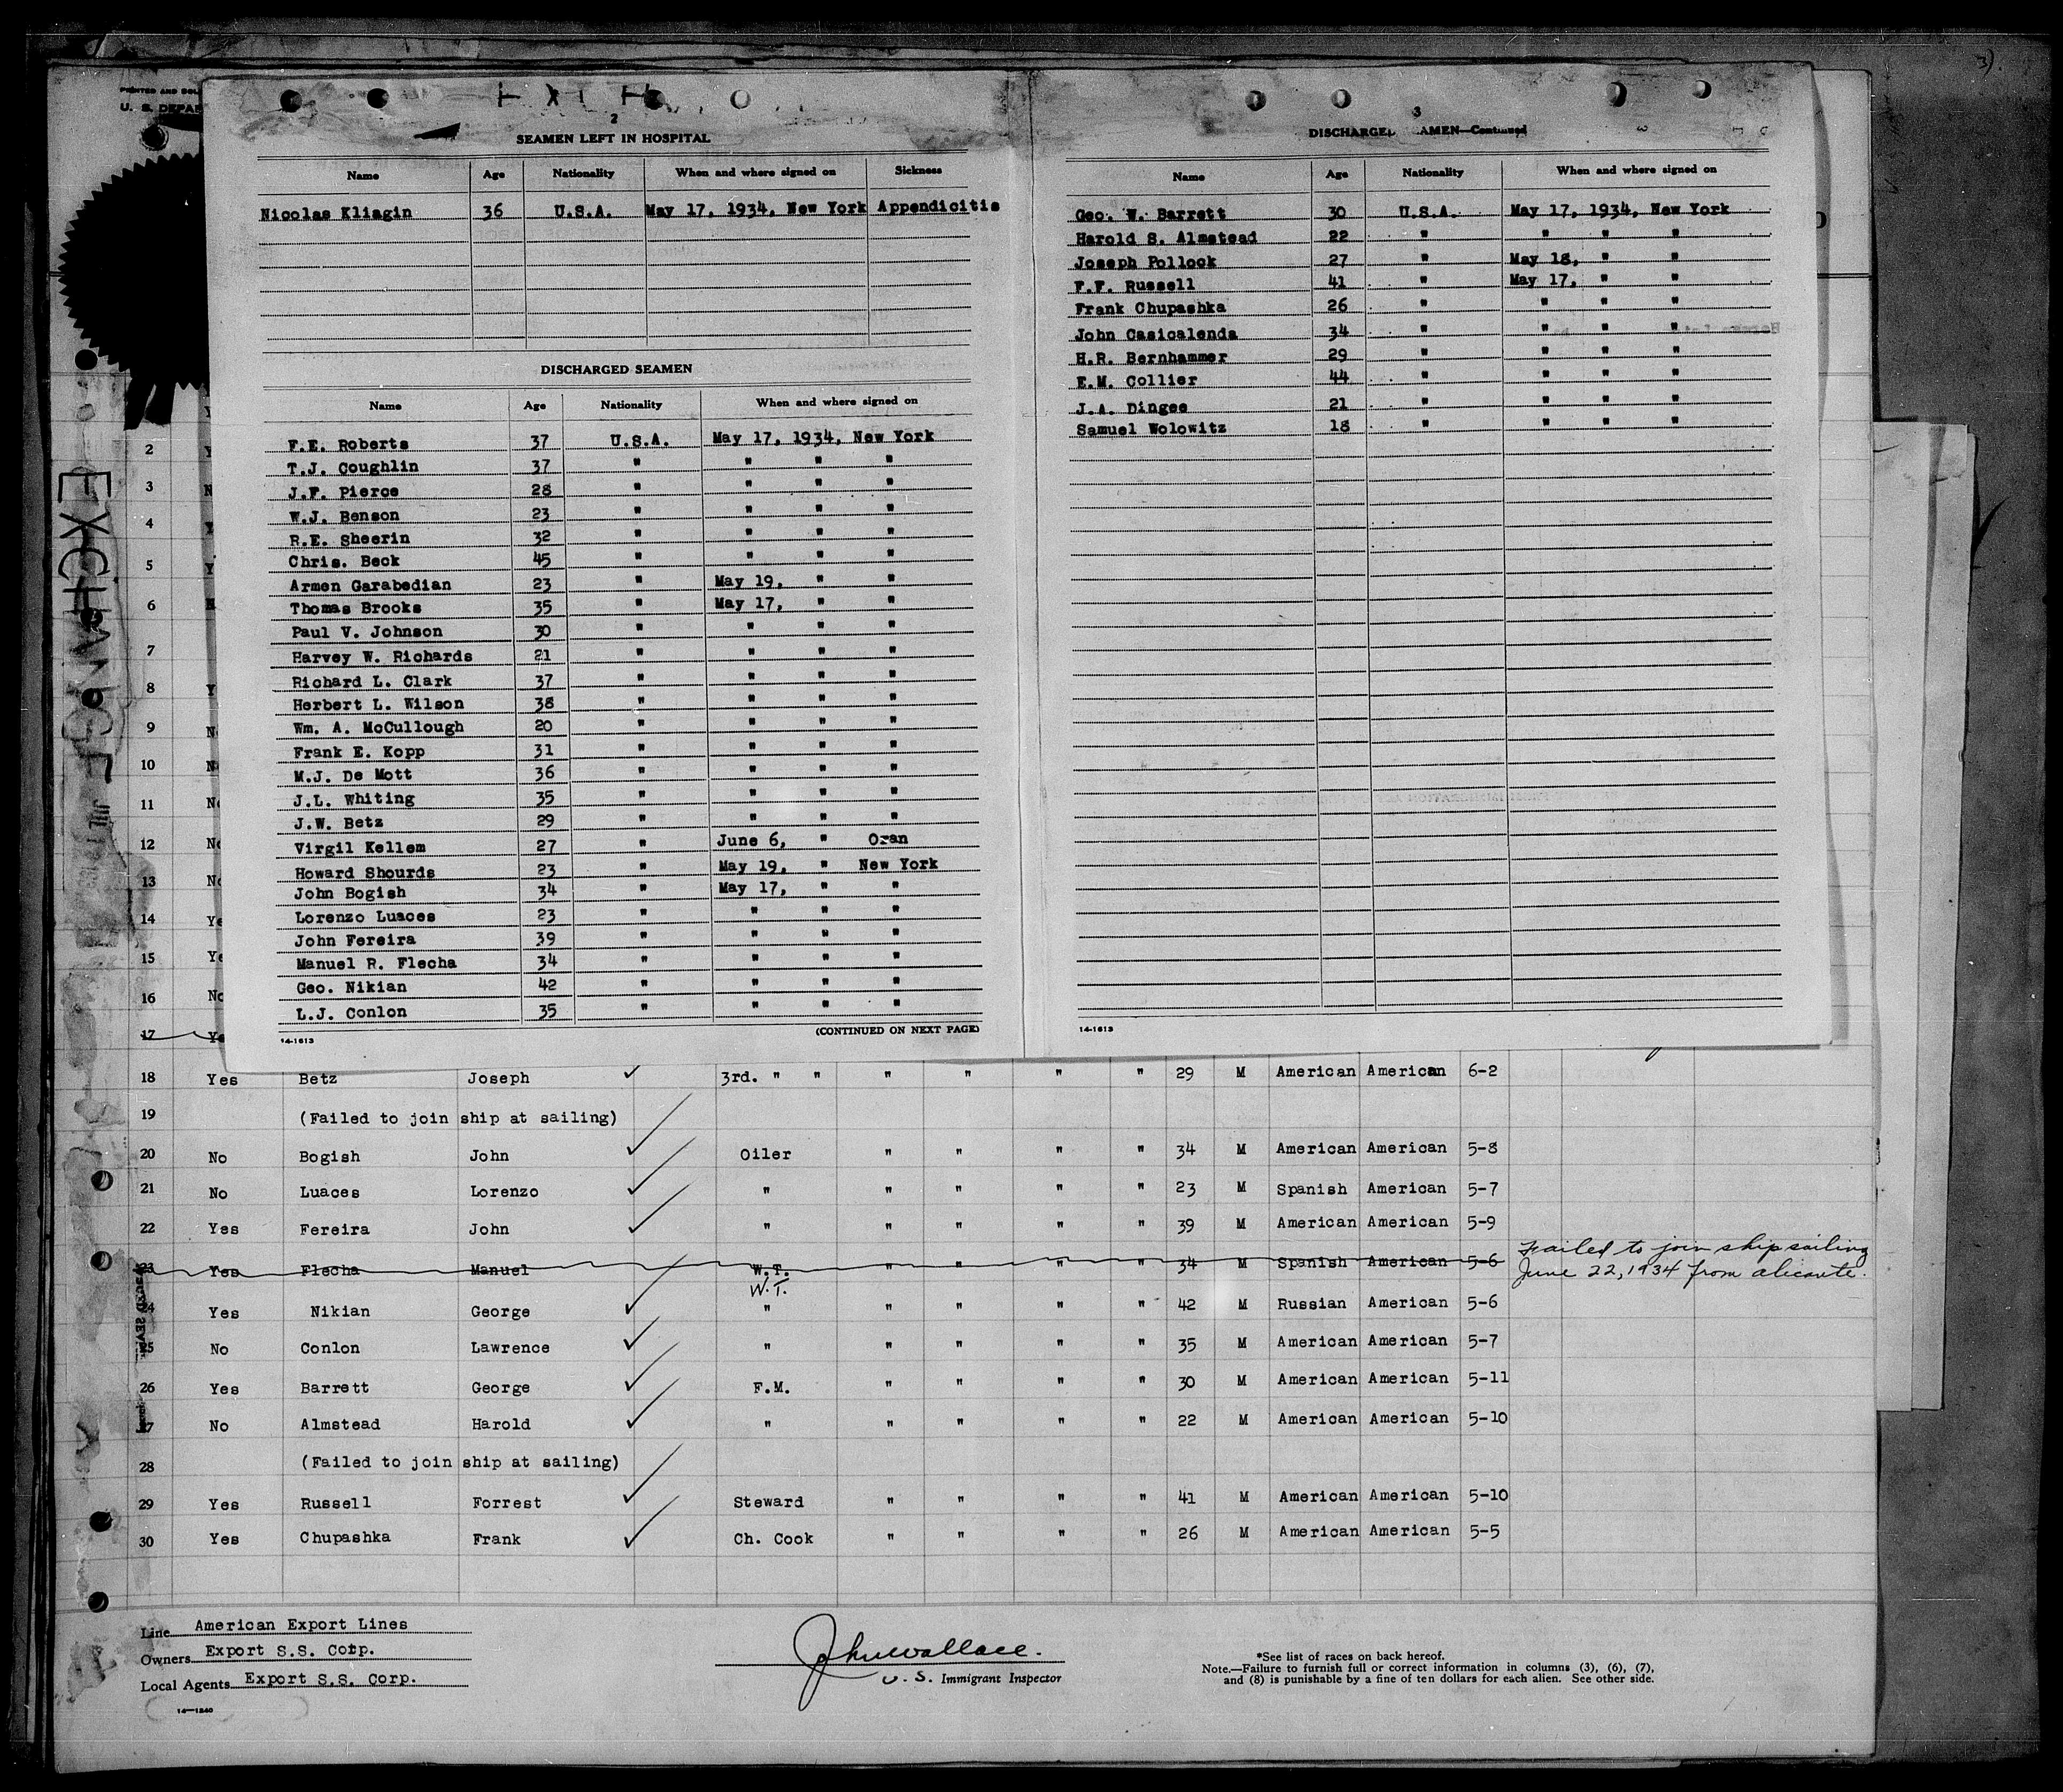 3).
PRINTED AND SOL
U. S. DEPAR
EXCHANGE
2
SEAMEN LEFT IN HOSPITAL
Name Age Nationality When and where signed on Sickness
Nicolas Kliagin 36 U.S.A. May 17, 1934, New York Appendicitis
DISCHARGED SEAMEN
Name Age Nationality When and where signed on
F.E. Roberts 37 U.S.A. May 17, 1934, New York
T.J. Coughlin 37 " " " "
J.F. Pierce 28 " " " "
W.J. Benson 23 " " " "
R.E. Sheerin 32 " " " "
Chris. Beck 45 " " " "
Armen Garabedian 23 " May 19, " "
Thomas Brooks 35 " May 17, " "
Paul V. Johnson 30 " " " "
Harvey W. Richards 21 " " " "
Richard L. Clark 37 " " " "
Herbert L. Wilson 38 " " " "
Wm. A. McCullough 20 " " " "
Frank E. Kopp 31 " " " "
M.J. De Mott 36 " " " "
J.L. Whiting 35 " " " "
J.W. Betz 29 " " " "
Virgil Kellem 27 " June 6, " Oran
Howard Shourds 23 " May 19, " New York
John Bogish 34 " May 17, " "
Lorenzo Luaces 23 " " " "
John Fereira 39 " " " "
Manuel R. Flecha 34 " " " "
Geo. Nikian 42 " " " "
L.J. Conlon 35 " " " "
(CONTINUED ON NEXT PAGE)
14-1613
3
DISCHARGED SEAMEN—Continued
Name Age Nationality When and where signed on
Geo. W. Barrett 30 U.S.A. May 17, 1934, New York
Harold S. Almstead 22 " " " "
Joseph Pollock 27 " May 18, " "
F.F. Russell 41 " May 17, " "
Frank Chupashka 26 " " " "
John Casicalenda 34 " " " "
H.R. Bernhammer 29 " " " "
E.M. Collier 44 " " " "
J.A. Dingee 21 " " " "
Samuel Wolowitz 18 " " " "
14-1613
2
3
4
5
6
7
8
9
10
11
12
13
14
15
16
17
18 Yes Betz Joseph 3rd. " " " " " " 29 M American American 6-2
19 (Failed to join ship at sailing)
20 No Bogish John Oiler " " " " 34 M American American 5-8
21 No Luaces Lorenzo " " " " " 23 M Spanish American 5-7
22 Yes Fereira John " " " " " 39 M American American 5-9
23 Yes Flecha Manuel W.T. " " " " 34 M Spanish American 5-6 Failed to join ship sailing
June 22, 1934 from alicante.
W.T.
24 Yes Nikian George " " " " " 42 M Russian American 5-6
25 No Conlon Lawrence " " " " " 35 M American American 5-7
26 Yes Barrett George F.M. " " " " 30 M American American 5-11
27 No Almstead Harold " " " " " 22 M American American 5-10
28 (Failed to join ship at sailing)
29 Yes Russell Forrest Steward " " " " 41 M American American 5-10
30 Yes Chupashka Frank Ch. Cook " " " " 26 M American American 5-5
Line American Export Lines
Owners Export S.S. Corp.
Local Agents Export S.S. Corp.
14—1240
John Wallace.
U. S. Immigrant Inspector
*See list of races on back hereof.
Note.—Failure to furnish full or correct information in columns (3), (6), (7),
and (8) is punishable by a fine of ten dollars for each alien. See other side.